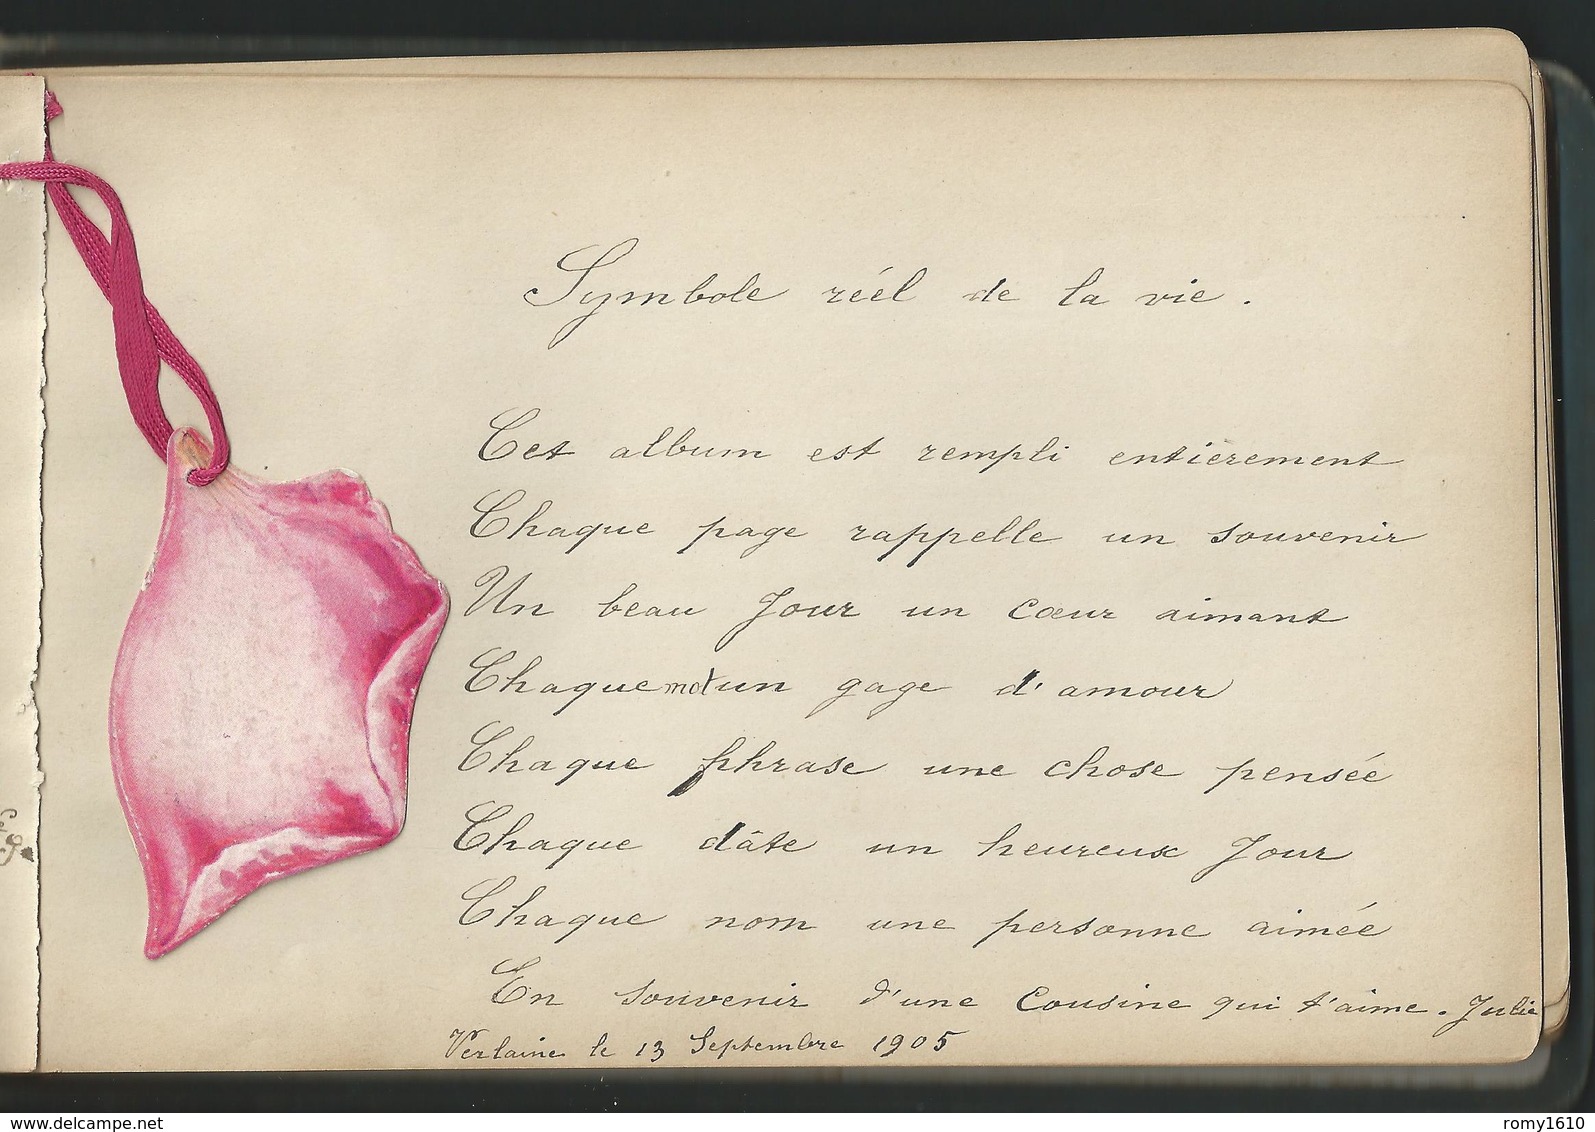 Symbole réel de la vie.
Cet album est rempli entièrement
Chaque page rappelle un souvenir
Un beau Jour un cœur aimant
Chaque mot un gage d'amour
Chaque phrase une chose pensée
Chaque dâte un heureux Jour
Chaque nom une personne aimée
En souvenir d'une cousine qui t'aime. Julie
Verlaine le 13 Septembre 1905
www.delcampe.net
romy1610